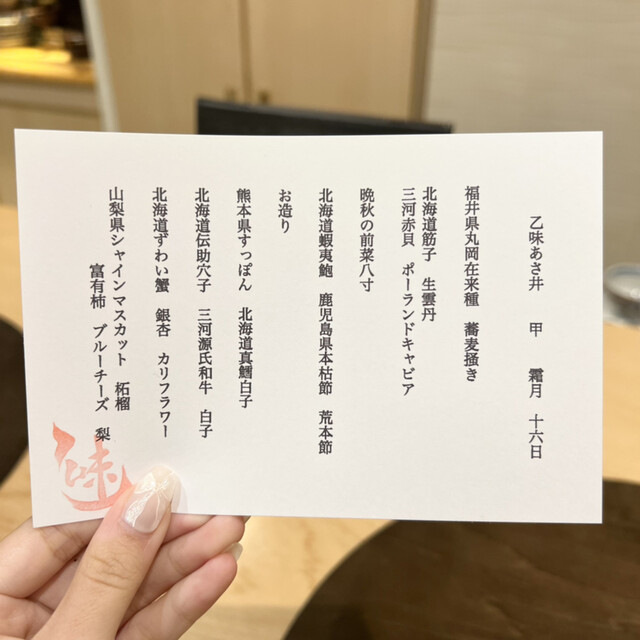 乙味あさ井　甲　霜月　十六日
福井県丸岡在来種　蕎麦掻き
北海道筋子　生雲丹
三河赤貝　ポーランドキャビア
晩秋の前菜八寸
北海道蝦夷鮑　鹿児島県本枯節　荒本節
お造り
熊本県すっぽん　北海道真鱈白子
北海道伝助穴子　三河源氏和牛　白子
北海道ずわい蟹　銀杏　カリフラワー
山梨県シャインマスカット　柘榴
富有柿　ブルーチーズ　梨
乙味